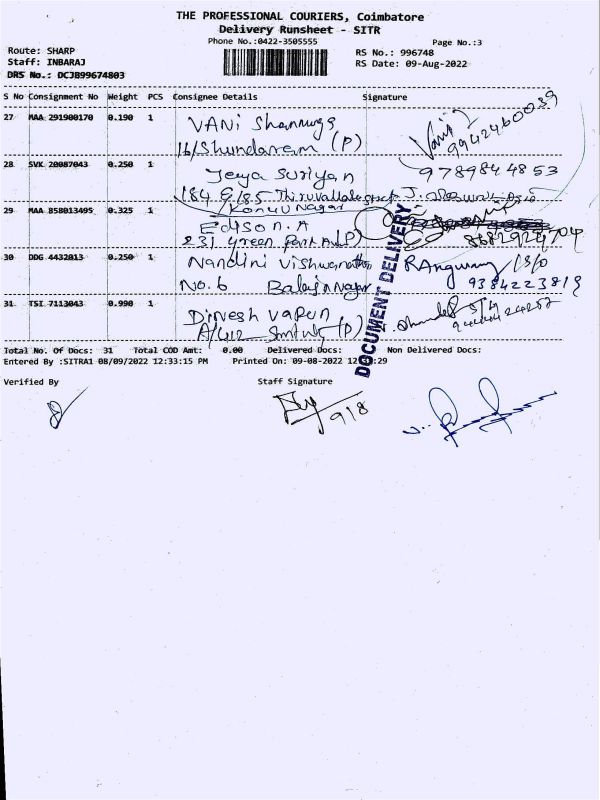 THE PROFESSIONAL COURIERS, Coimbatore
Delivery Runsheet - SITR
Phone No.:0422-3505555
Page No.:3
Route: SHARP
RS No.: 996748
Staff: INBARAJ
RS Date: 09-Aug-2022
DRS No.: DCJB99674803
S No Consignment No Weight PCS Consignee Details Signature
27 MAA 291900170 0.190 1 VANI Shanmuga
16/Shundaram (P)
9942460039
28 SVK 20087043 0.250 1 Jeya Suriyan
9789844853
184 & 185 Thiruvalla
Nagar
29 MAA 858013495 0.325 1 Edison.A
231 green Park (P)
8682929704
30 DDG 4432013 0.250 1 Nandini Vishwanathan
No.6 Balaji Nagar
9384223819
31 TSI 7113043 0.990 1 Dinesh
A/412 (P)
DOCUMENT DELIVERY
Total No. Of Docs: 31 Total COD Amt: 0.00 Delivered Docs: Non Delivered Docs:
Entered By :SITRA1 08/09/2022 12:33:15 PM Printed On: 09-08-2022 12:33:29
Verified By
Staff Signature
9/8